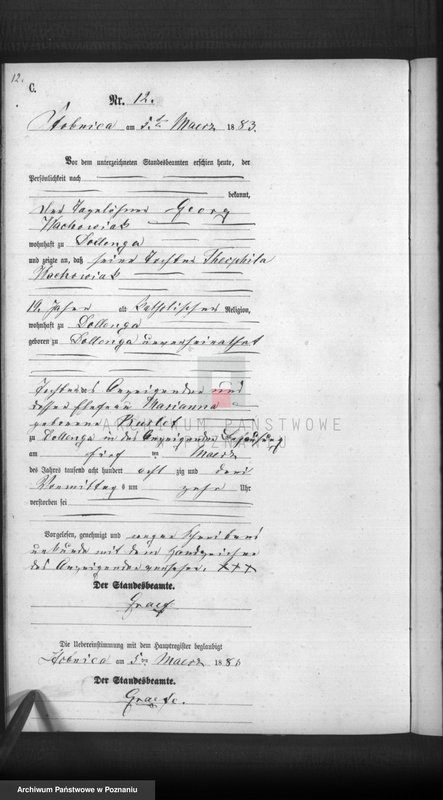 12.
C.
Nr. 12.
Stobnica am 5ten Maerz 1883.
Vor dem unterzeichneten Standesbeamten erschien heute, der
Persönlichkeit nach
bekannt,
der Tagelöhner Georg
Wachowiak
wohnhaft zu Dollenga
und zeigte an, daß seine Tochter Theophila
Wachowiak
19 Jahre alt katholischer Religion,
wohnhaft zu Dollenga
geboren zu Dollenga unverheirathet
Tochter des Anzeigenden und
dessen Ehefrau Marianna
geborene
zu Dollenga in des Anzeigenden Behausung
am fünf ten Maerz
des Jahres tausend acht hundert acht zig und drei
Vormittags um zehn Uhr
verstorben sei
Vorgelesen, genehmigt und wegen Schreibens
unkunde mit dem Handzeichen
des Anzeigenden versehen. +++
Der Standesbeamte.
Die Uebereinstimmung mit dem Hauptregister beglaubigt
Stobnica am 5ten Maerz 1883
Der Standesbeamte.
ARCHIWUM PAŃSTWOWE
W POZNANIU
Archiwum Państwowe w Poznaniu